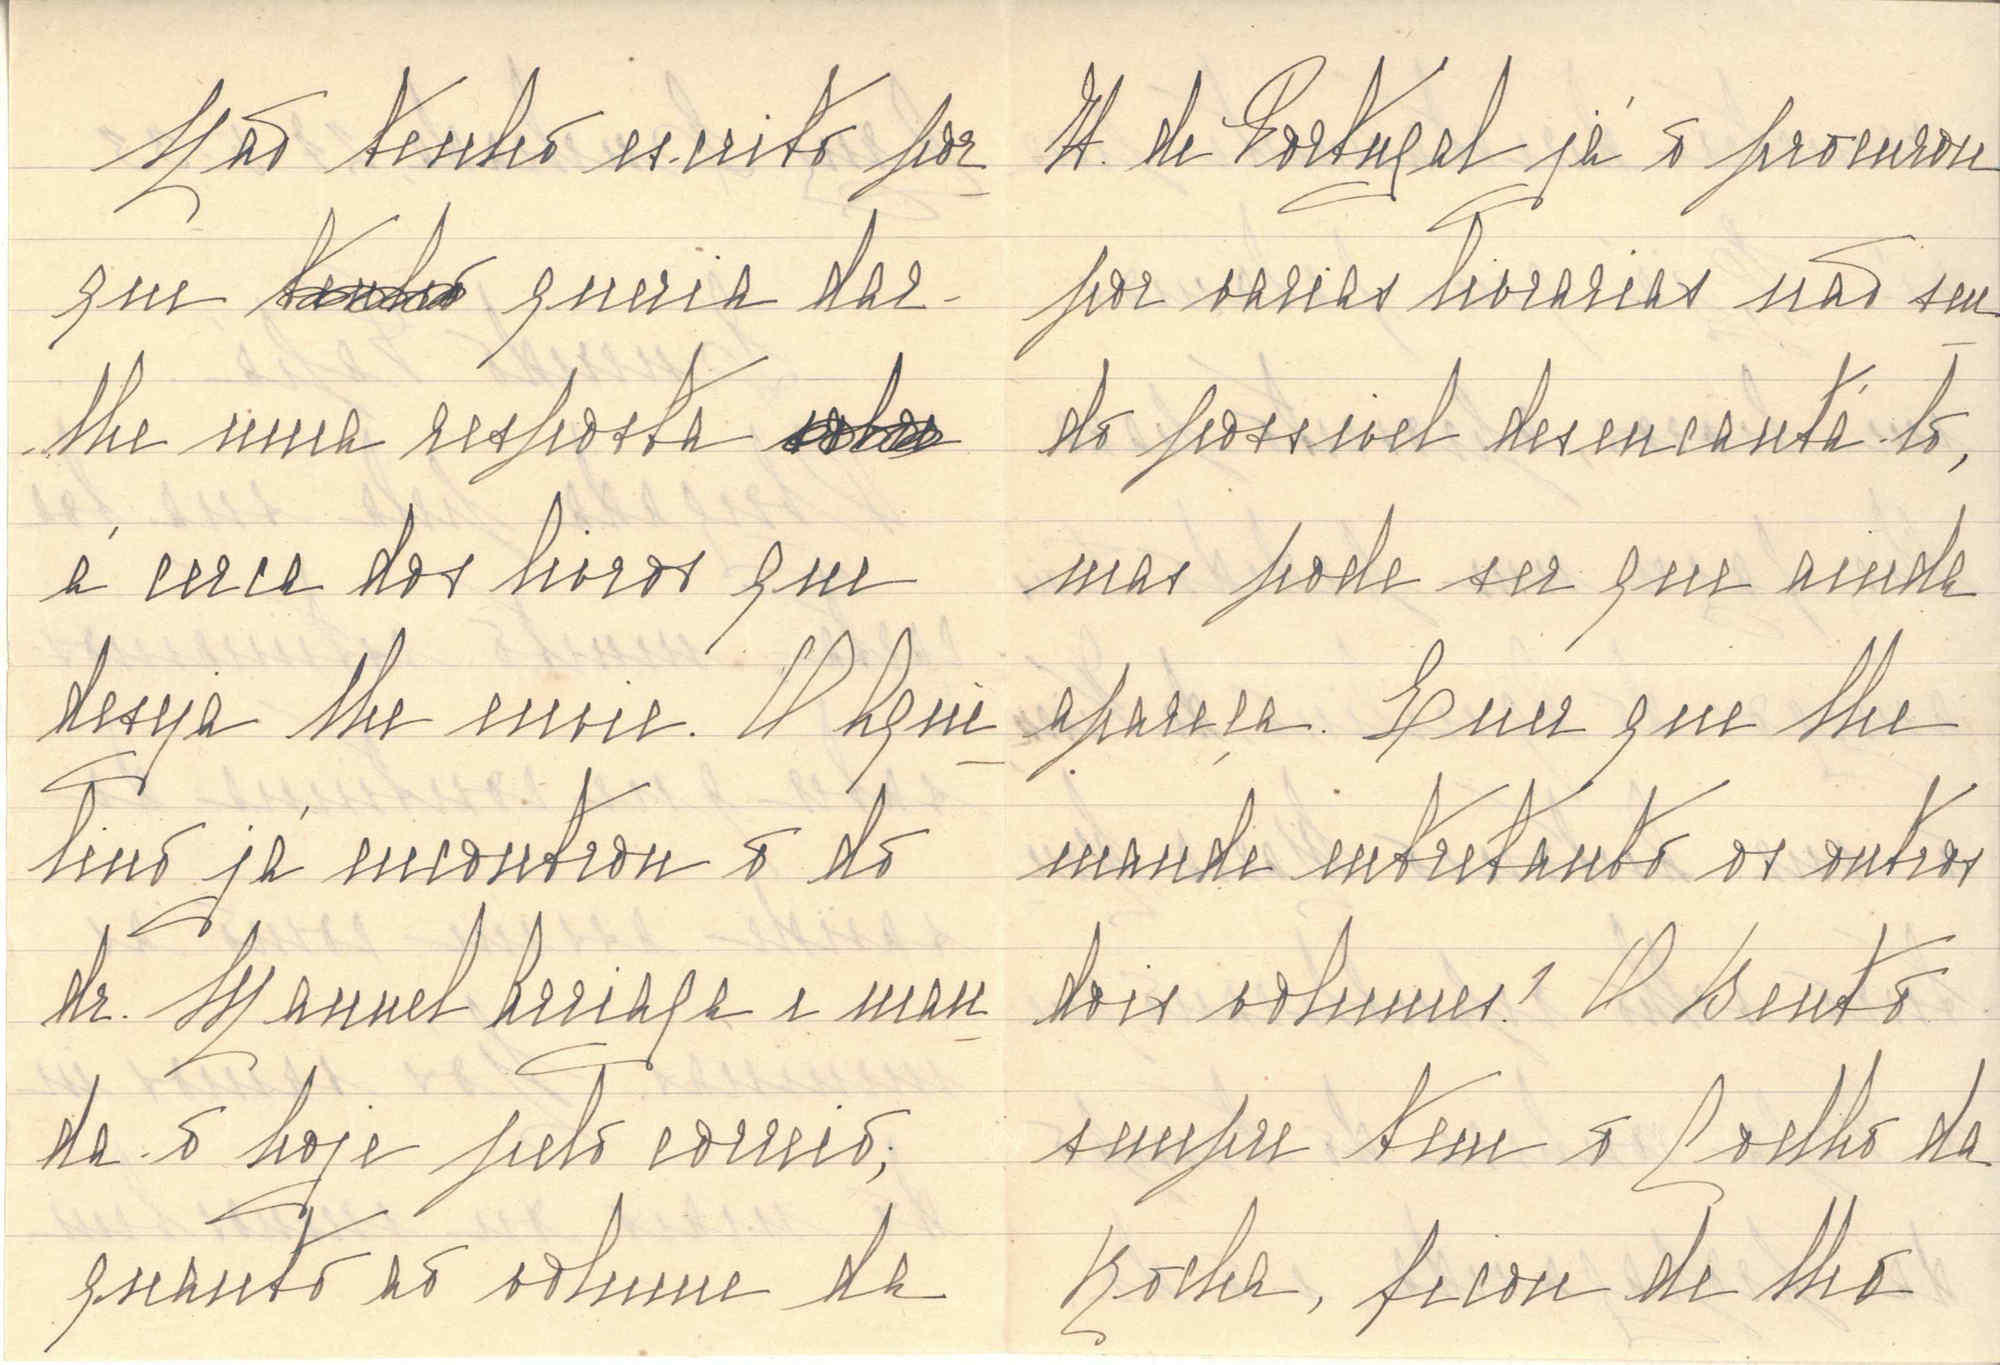 Não tenho escrito por-
que tenho queria dar-
-lhe uma resposta sobre
á cerca dos livros que
deseja lhe envie. O Aqui-
lino já encontrou o do
dr. Manuel Arriaga e man-
da-o hoje pelo correio;
quanto ao volume da
H. de Portugal já o procurou
por varias livrarias não sen-
do possivel desencantá-lo,
mas pode ser que ainda
apareça. Quer que lhe
mande entretanto os outros
dois volumes? O Bento
sempre tem o Coelho da
Rocha, ficou de lho